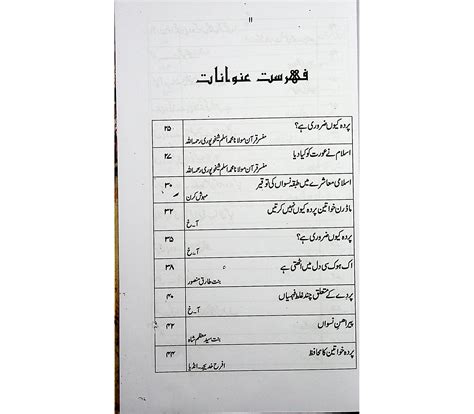 ۱۱
فہرست عنوانات
پردہ کیوں ضروری ہے؟ ۲۵
مفسر قرآن مولانا محمد اسلم شیخوپوری رحمہ اللہ
اسلام نے عورت کو کیا دیا ۲۷
مفسر قرآن مولانا محمد اسلم شیخوپوری رحمہ اللہ
اسلامی معاشرے میں طبقہ نسواں کی توقیر ۳۰
مہوش کرن
ماڈرن خواتین پردہ کیوں نہیں کرتیں ۳۲
آ۔خ
پردہ کیوں ضروری ہے؟ ۳۵
آ۔خ
اک ہوک سی دل میں اٹھتی ہے ۳۸
بنت طارق منصور
پردے کے متعلق چند غلط فہمیاں ۴۰
آ۔خ
پیراھن نسواں ۴۲
بنت سید معظم شاہ
پردہ خواتین کا محافظ ۴۴
افرح خدیجہ۔ انڈیا